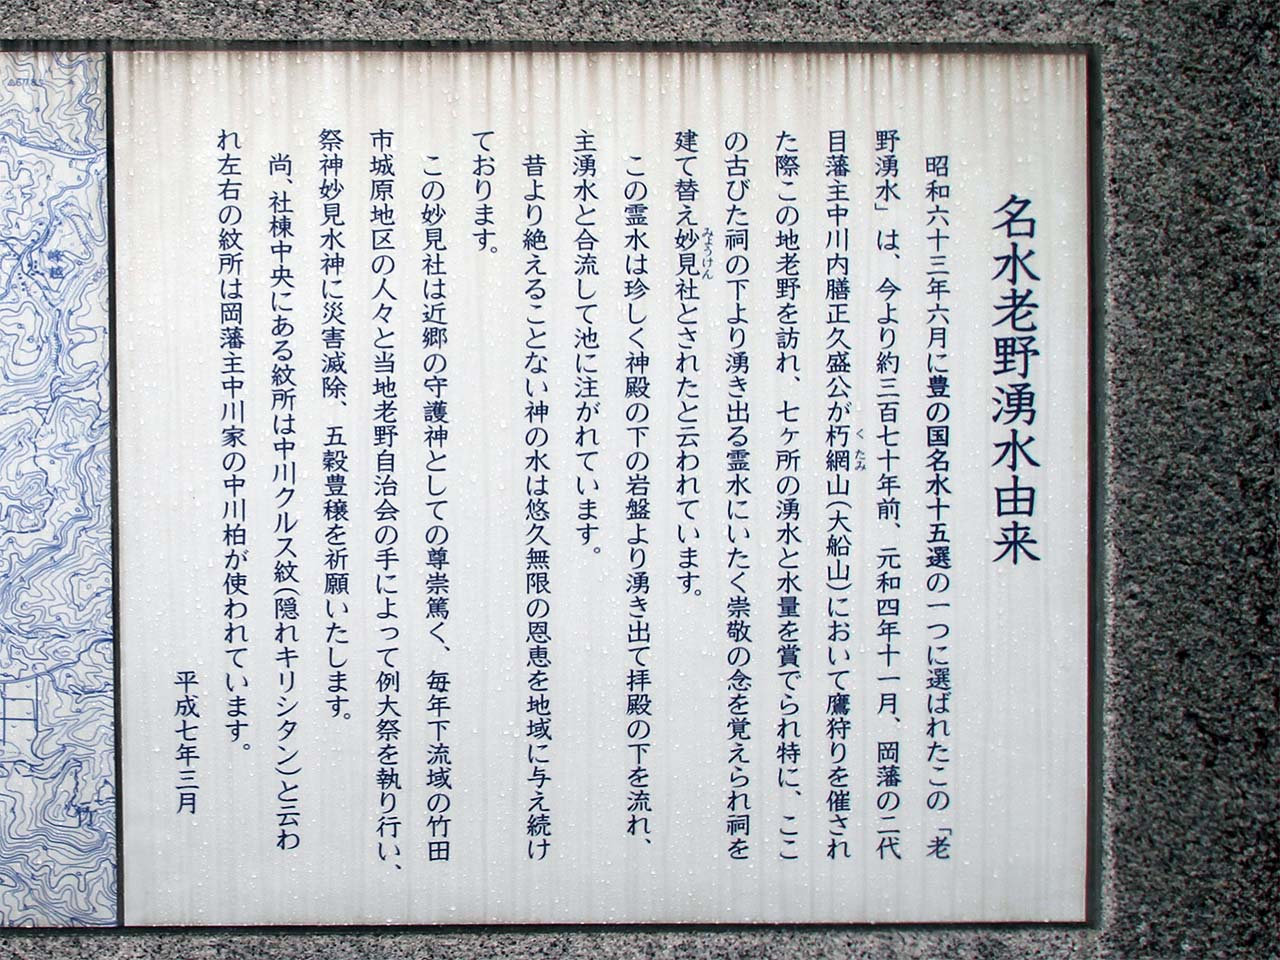 名水老野湧水由来
昭和六十三年六月に豊の国名水十五選の一つに選ばれたこの「老
野湧水」は、今より約三百七十年前、元和四年十一月、岡藩の二代
目藩主中川内膳正久盛公が朽網山(大船山)において鷹狩りを催され
くたみ
た際この地老野を訪れ、七ヶ所の湧水と水量を賞でられ特に、ここ
の古びた祠の下より湧き出る霊水にいたく崇敬の念を覚えられ祠を
建て替え妙見社とされたと云われています。
みょうけん
この霊水は珍しく神殿の下の岩盤より湧き出て拝殿の下を流れ、
主湧水と合流して池に注がれています。
昔より絶えることない神の水は悠久無限の恩恵を地域に与え続け
ております。
この妙見社は近郷の守護神としての尊崇篤く、毎年下流域の竹田
市城原地区の人々と当地老野自治会の手によって例大祭を執り行い、
祭神妙見水神に災害滅除、五穀豊穣を祈願いたします。
尚、社棟中央にある紋所は中川クルス紋(隠れキリシタン)と云わ
れ左右の紋所は岡藩主中川家の中川柏が使われています。
平成七年三月
峰越
竹